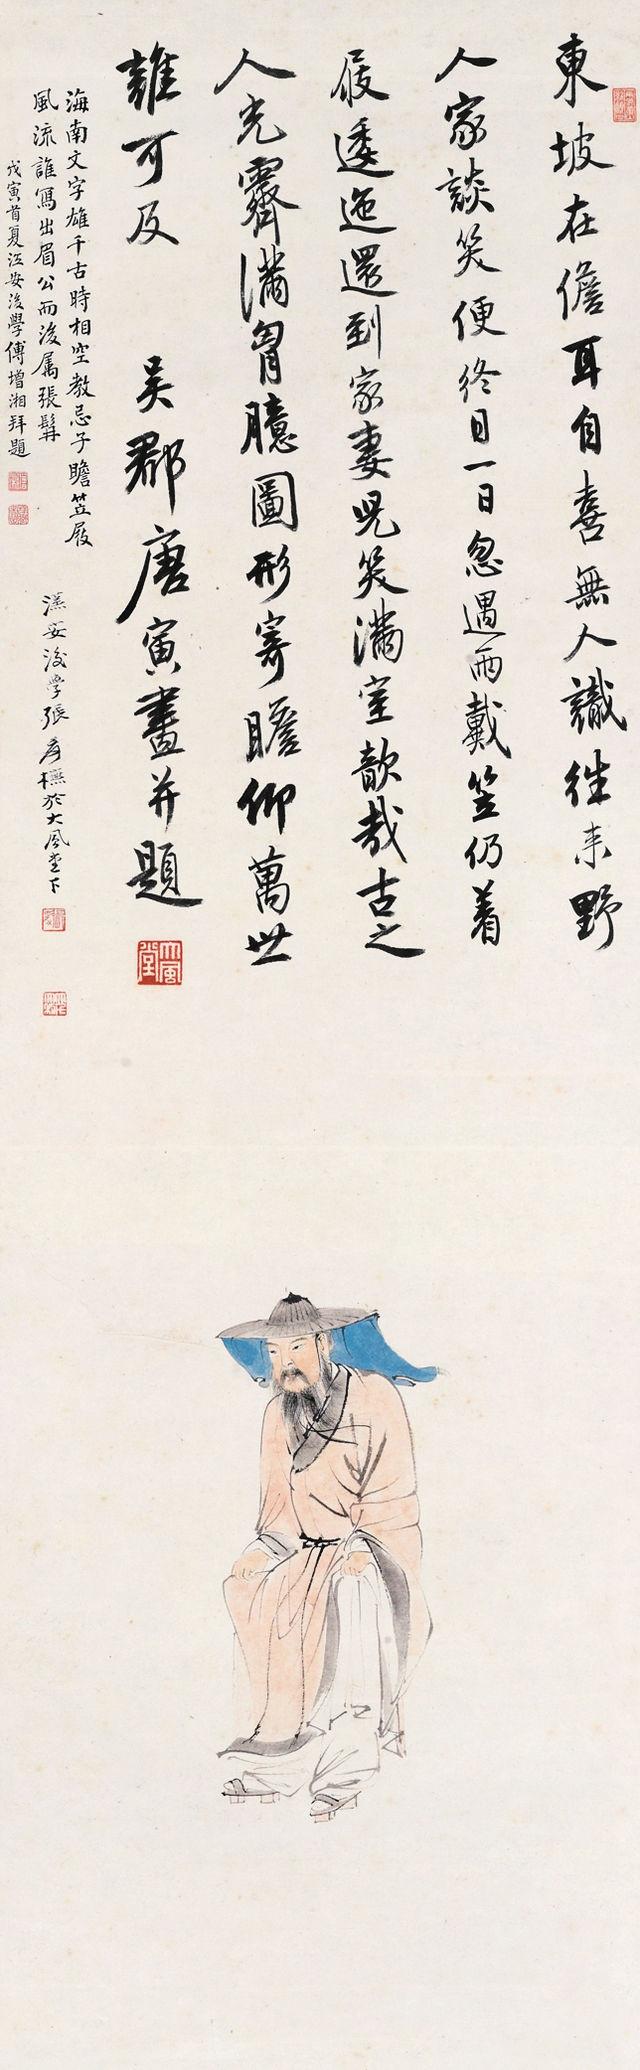 東坡在儋耳自喜無人識往來野
人家談笑便終日一日忽遇雨戴笠仍着
屐逶迤還到家妻兒笑滿室歆哉古之
人光霽滿胷臆圖形寄瞻仰萬世
誰可及
吳郡唐寅畫并題
大風堂
海南文字雄千古時相空教忌子瞻笠屐
風流誰寫出眉公而後屬張髯
戊寅首夏江安後學傅增湘拜題
漢安後學張爰橅於大風堂下